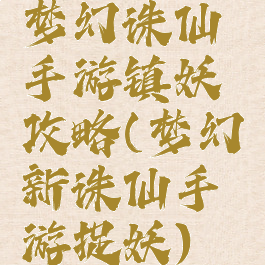 梦幻诛仙
手游镇妖
攻略(梦幻
新诛仙手
游捉妖)